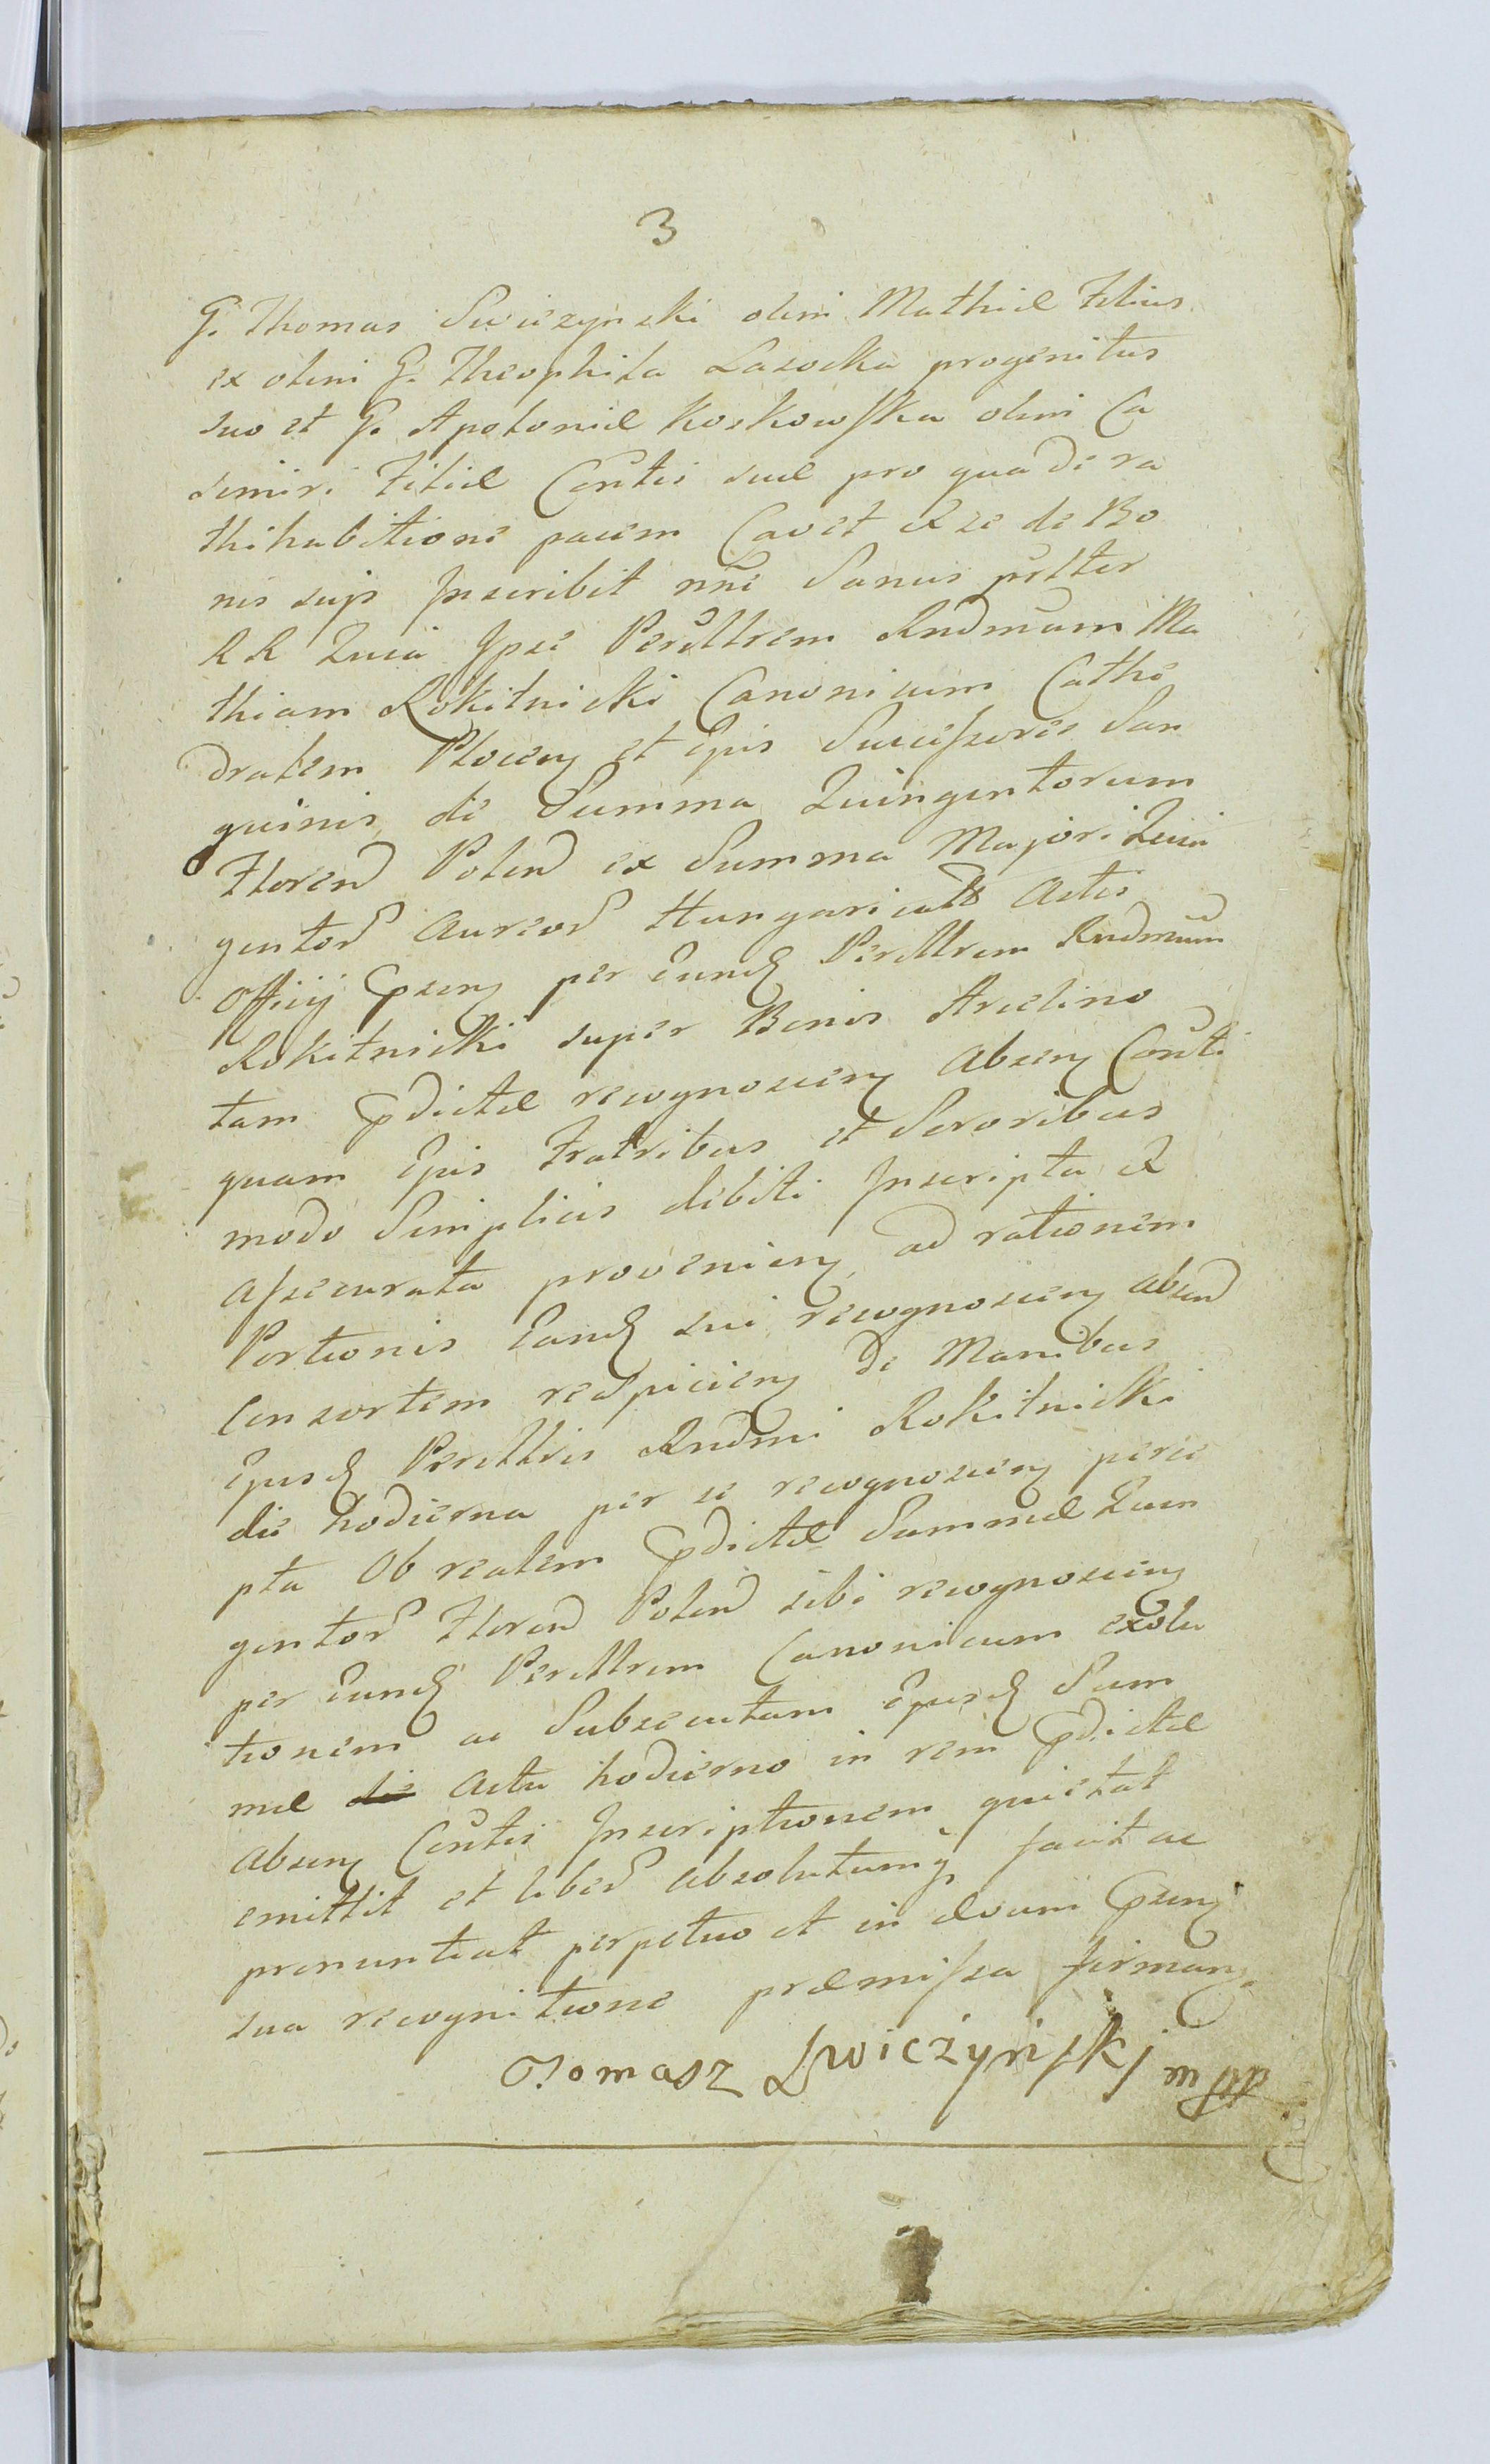 3
G. Thomas Swiczynski olim Mathiæ Filius
ex olim G. Theophila Lasocka progenitus
suo et G. Apoloniæ Koskowska olim Ca
simiri Filiæ Contis suæ pro qua de ra
thihabitione pacem Cavet & se de Bo
nis sujs Inscribit nñe Sanus pstter
RR Quia Ipse Perilltrem Rndmum Ma
thiam Rokitnicki Canonicum Cathe
dralem Plocen et Ejus Sucessores San
guinis de Summa Quingentorum
Floren Polon ex Summa Majori Quin
gentor Aureor Hungaricall Actis
Officij psen per Eund Perilltrem Rndmum
Rokitnicki super Bonis Arcelino
tam pdictæ recognoscen absen Conti
quam Ejus Fratribus et Sororibus
modo Simplicis debiti Inscripta &
assecurata provenien ad rationem
Portionis Eand sui recognoscen absen
Consortem respicien de Manibus
Ejusd Perilltris Rndmi Rokitnicki
die hodierna per se recognoscen perce
pta Ob realem pdictæ Summæ Quin
gentor Floren Polon sibi recognoscen
per Eund Perilltrem Canonicum exolu
tionem ac Subsecutam Ejusd Sum
mæ die Actu hodierno in rem pdictæ
absen Contis Inscriptionem quietat
emittit et liber absolutumq facit ac
pronuntiat perpetuo et in ævum psen
sua recognitione præmissa firman
Tomasz Swiczyński mp